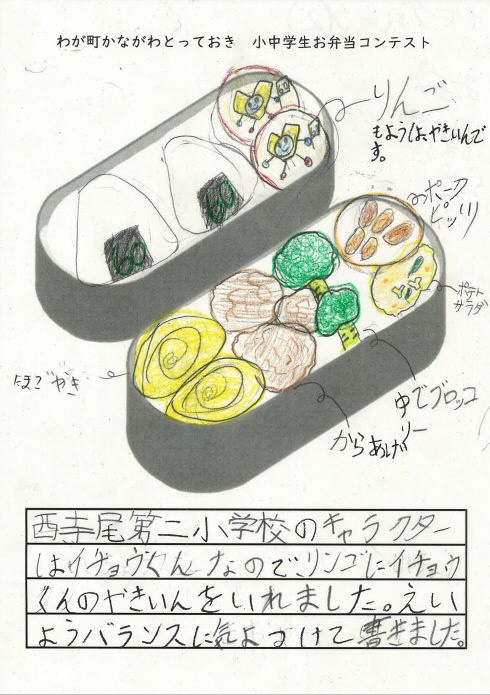 わが町かながわとっておき　小中学生お弁当コンテスト
りんご
もようは、やきいんで
す。
ポーク
ビッツ
ポテト
サラダ
たまごやき
ゆでブロッコ
リー
からあげ
西寺尾第二小学校のキャラクター
はイチョウくんなのでリンゴにイチョウ
くんのやきいんをいれました。えい
ようバランスに気よつけて書きました。